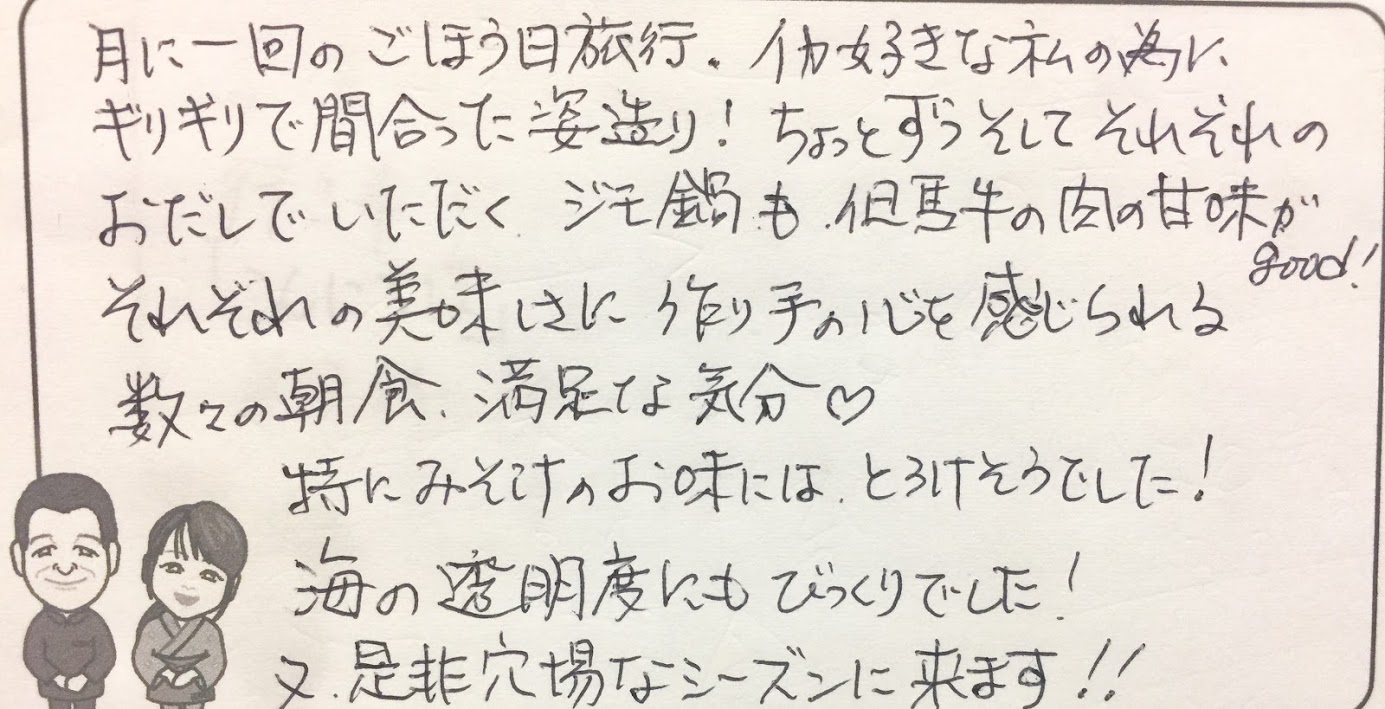 月に一回のごほう日旅行。イカ好きな私の為に、
ギリギリで間合った姿造り！ちょっとずつそしてそれぞれの
おだしでいただく ジモ鍋も、但馬牛の肉の甘味が
good!
それぞれの美味しさに 作り手の心を感じられる
数々の朝食、満足な気分♡
特にみそづけのお味には、とろけそうでした！
海の透明度にもびっくりでした！
又、是非穴場なシーズンに来ます!!